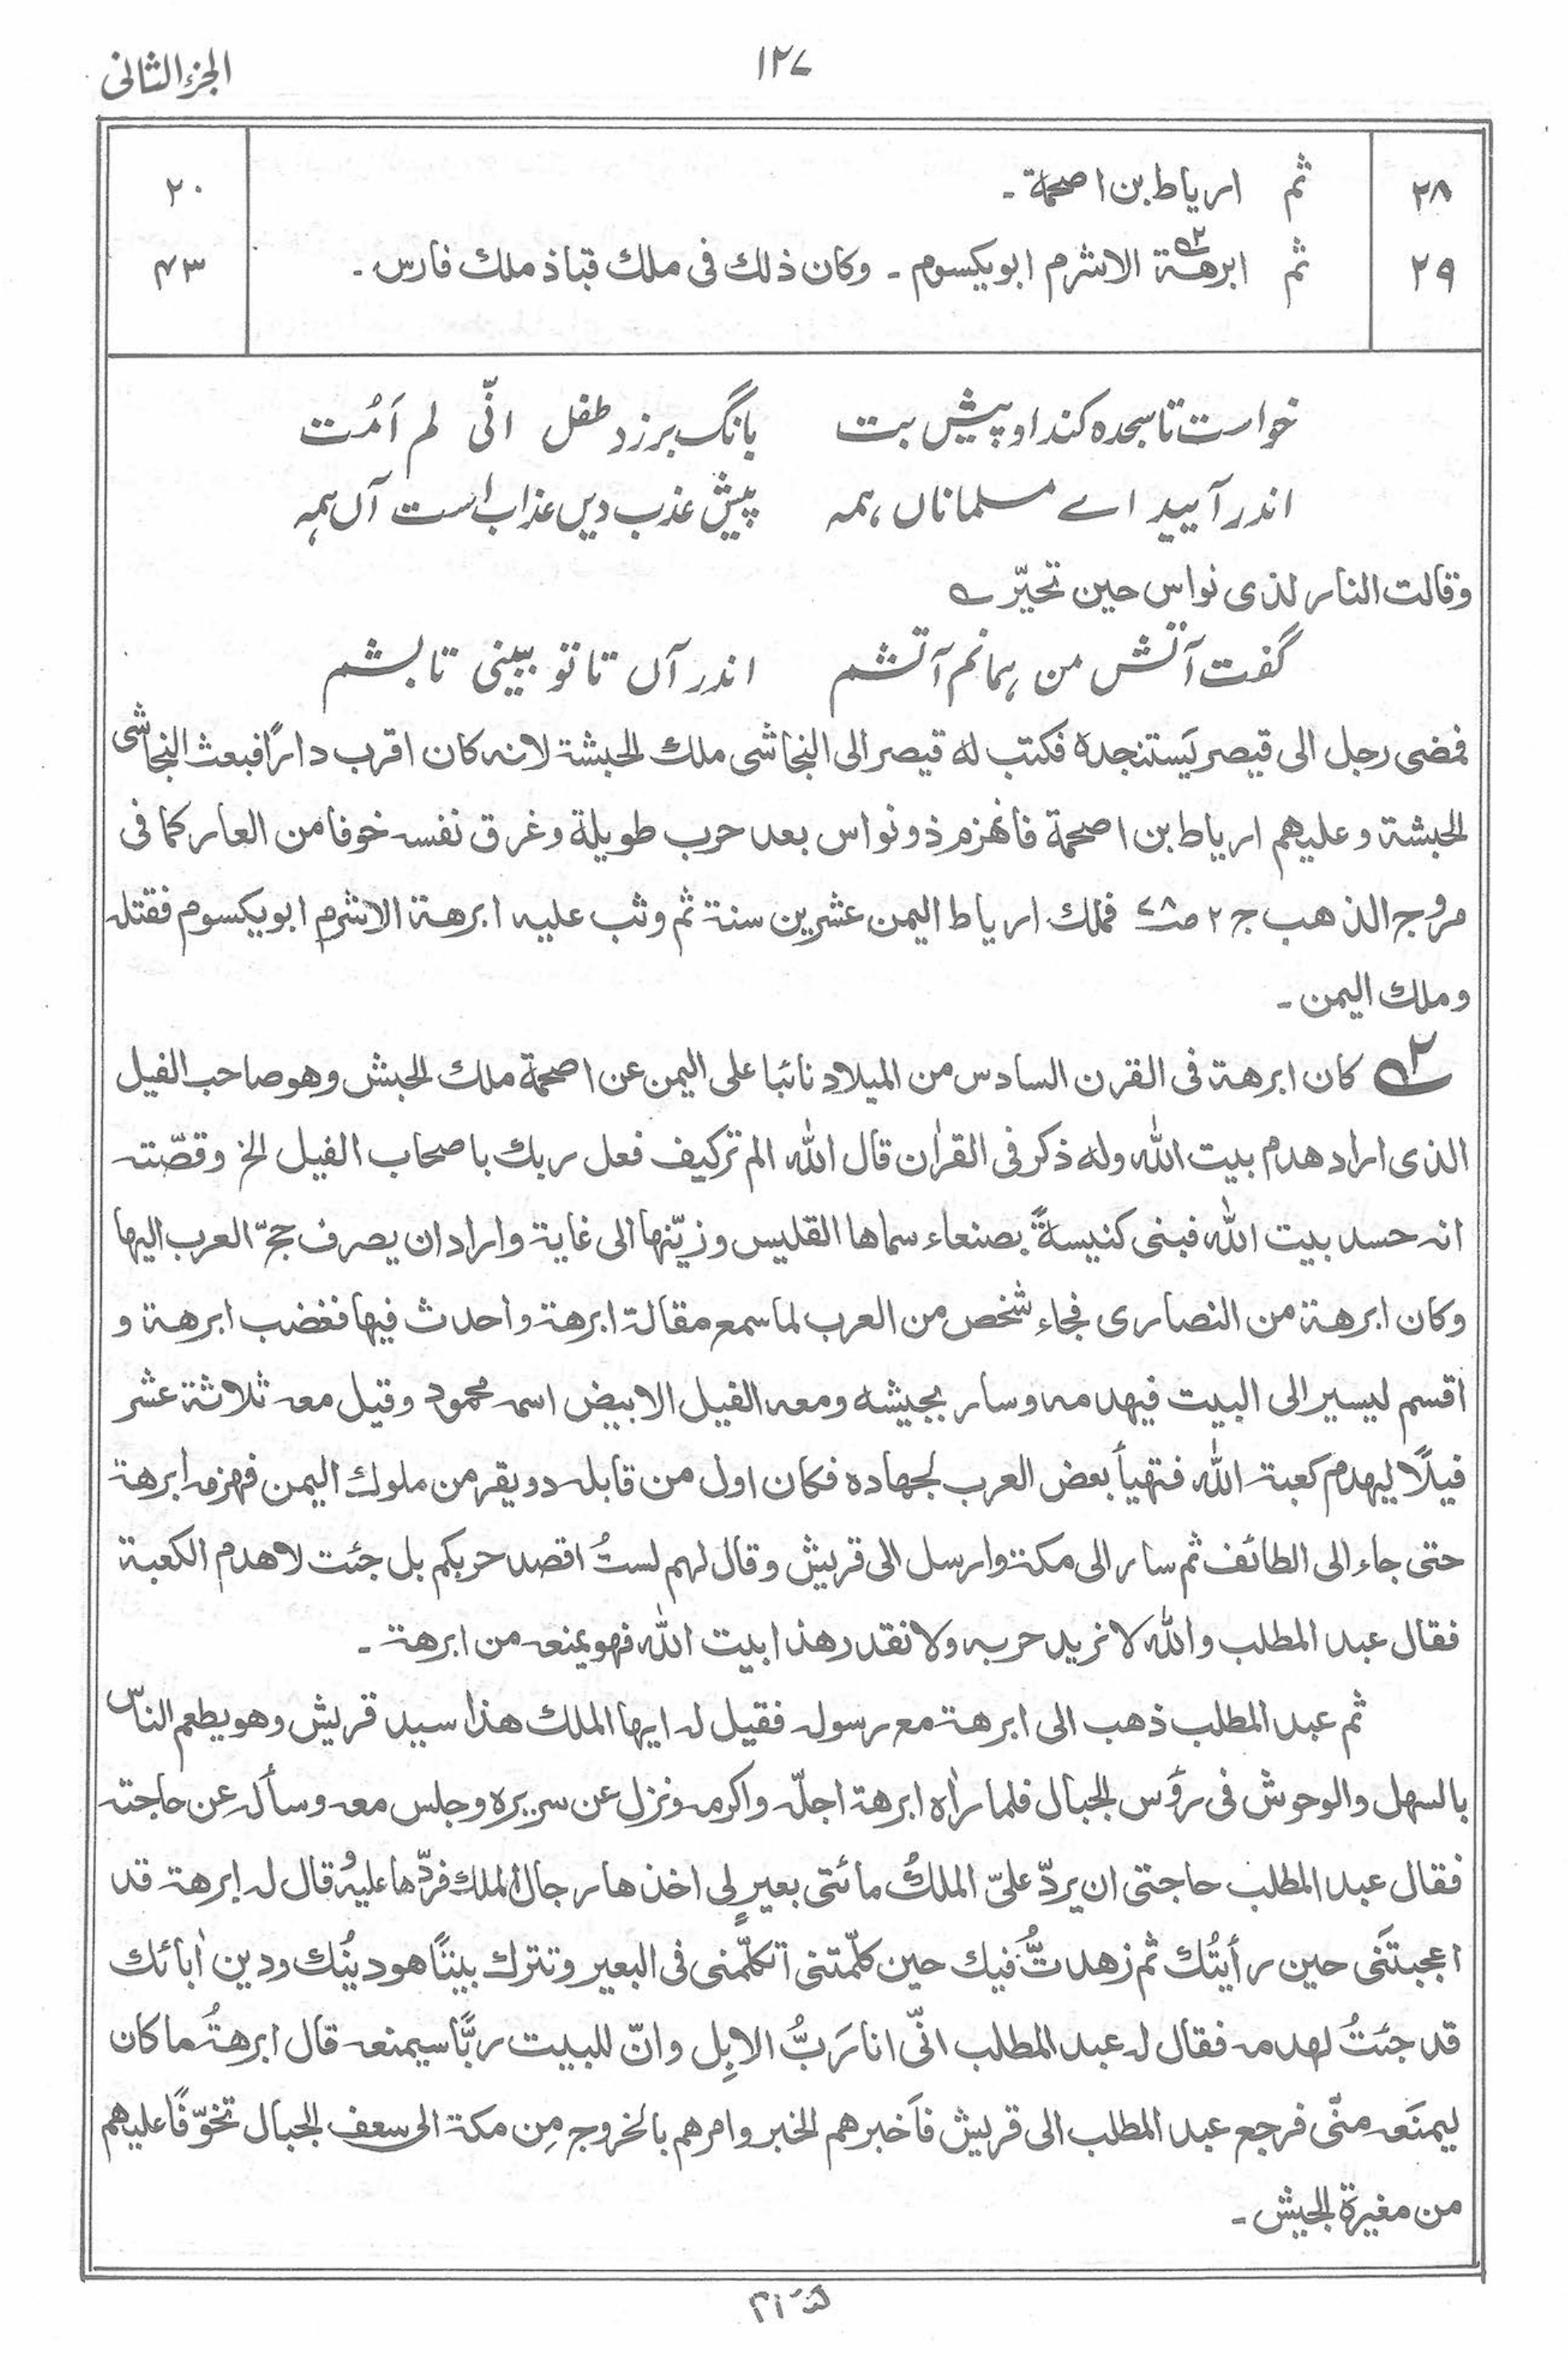 الجزء الثانی
۱۲۷
۲۸ ثم ارياط بن اصحمة ۔ ۲۰
۲۹ ثم ابرهة الاشرم ابو يكسوم ۔ وكان ذلك فى ملك قباذ ملك فارس ۔ ۴۳
خواست تا سجده کند او پیش بت بانگ بر زد طفل انّی لم اَمُت
اندر آیید اے مسلماناں ہمہ پیش عذب دیں عذاب است آں ہمہ
وقالت النار لذى نواس حين تحيّر
گفت آتش من ہمانم آتشم اندر آں تا تو ببینی تابشم
فمضى رجل الى قيصر يَستنجده فكتب له قيصر الى النجاشى ملك الحبشة لانه كان اقرب دارًا فبعث النجاشى
الحبشة وعليهم ارياط بن اصحمة فانهزم ذو نواس بعد حرب طويلة وغرق نفسه خوفا من العار كما فى
مروج الذهب ج ۲ ص۷۸ فملك ارياط اليمن عشرين سنة ثم وثب عليه ابرهة الاشرم ابو يكسوم فقتله
وملك اليمن ۔
۲ كان ابرهة فى القرن السادس من الميلاد نائبا على اليمن عن اصحمة ملك الحبش وهو صاحب الفيل
الذى اراد هدم بيت الله وله ذكر فى القرآن قال الله الم تر كيف فعل ربك باصحاب الفيل الخ وقصّته
انه حسد بيت الله فبنى كنيسةً بصنعاء سماها القليس وزيّنها الى غاية واراد ان يصرف حجّ العرب اليها
وكان ابرهة من النصارى فجاء شخص من العرب لما سمع مقالة ابرهة واحدث فيها فغضب ابرهة و
اقسم ليسير الى البيت فيهدمه وسار بجيشه ومعه الفيل الابيض اسمه محمود وقيل معه ثلاثة عشر
فيلًا ليهدم كعبة الله فتهيأ بعض العرب لجهاده فكان اول من قابله دويقر من ملوك اليمن فهزمه ابرهة
حتى جاء الى الطائف ثم سار الى مكة وارسل الى قريش وقال لهم لستُ اقصد حربكم بل جئت لاهدم الكعبة
فقال عبد المطلب والله لا نريد حربه ولا نقدر هذا بيت الله فهو يمنعه من ابرهة ۔
ثم عبد المطلب ذهب الى ابرهة مع رسوله فقيل له ايها الملك هذا سيد قريش وهو يطعم الناس
بالسهل والوحوش فى رؤس الجبال فلما راٰه ابرهة اجلّه واكرمه ونزل عن سريره وجلس معه وسأله عن حاجته
فقال عبد المطلب حاجتى ان يردّ علىّ الملكُ مائتى بعيرٍ لى اخذها رجال الملك فردّها عليه وقال له ابرهة قد
اعجبتَنى حين رأيتُك ثم زهدتُّ فيك حين كلّمتنى اتكلّمنى فى البعير وتترك بيتًا هو دينُك ودين اٰبائك
قد جئتُ لهدمه فقال له عبد المطلب انّى انا رَبُّ الابِل وانّ للبيت ربًّا سيمنعه قال ابرهةُ ما كان
ليمنَعه منّى فرجع عبد المطلب الى قريش فاَخبرهم الخبر وامرهم بالخروج مِن مكة الى سعف الجبال تخوّفًا عليهم
من مغيرة الجيش ۔